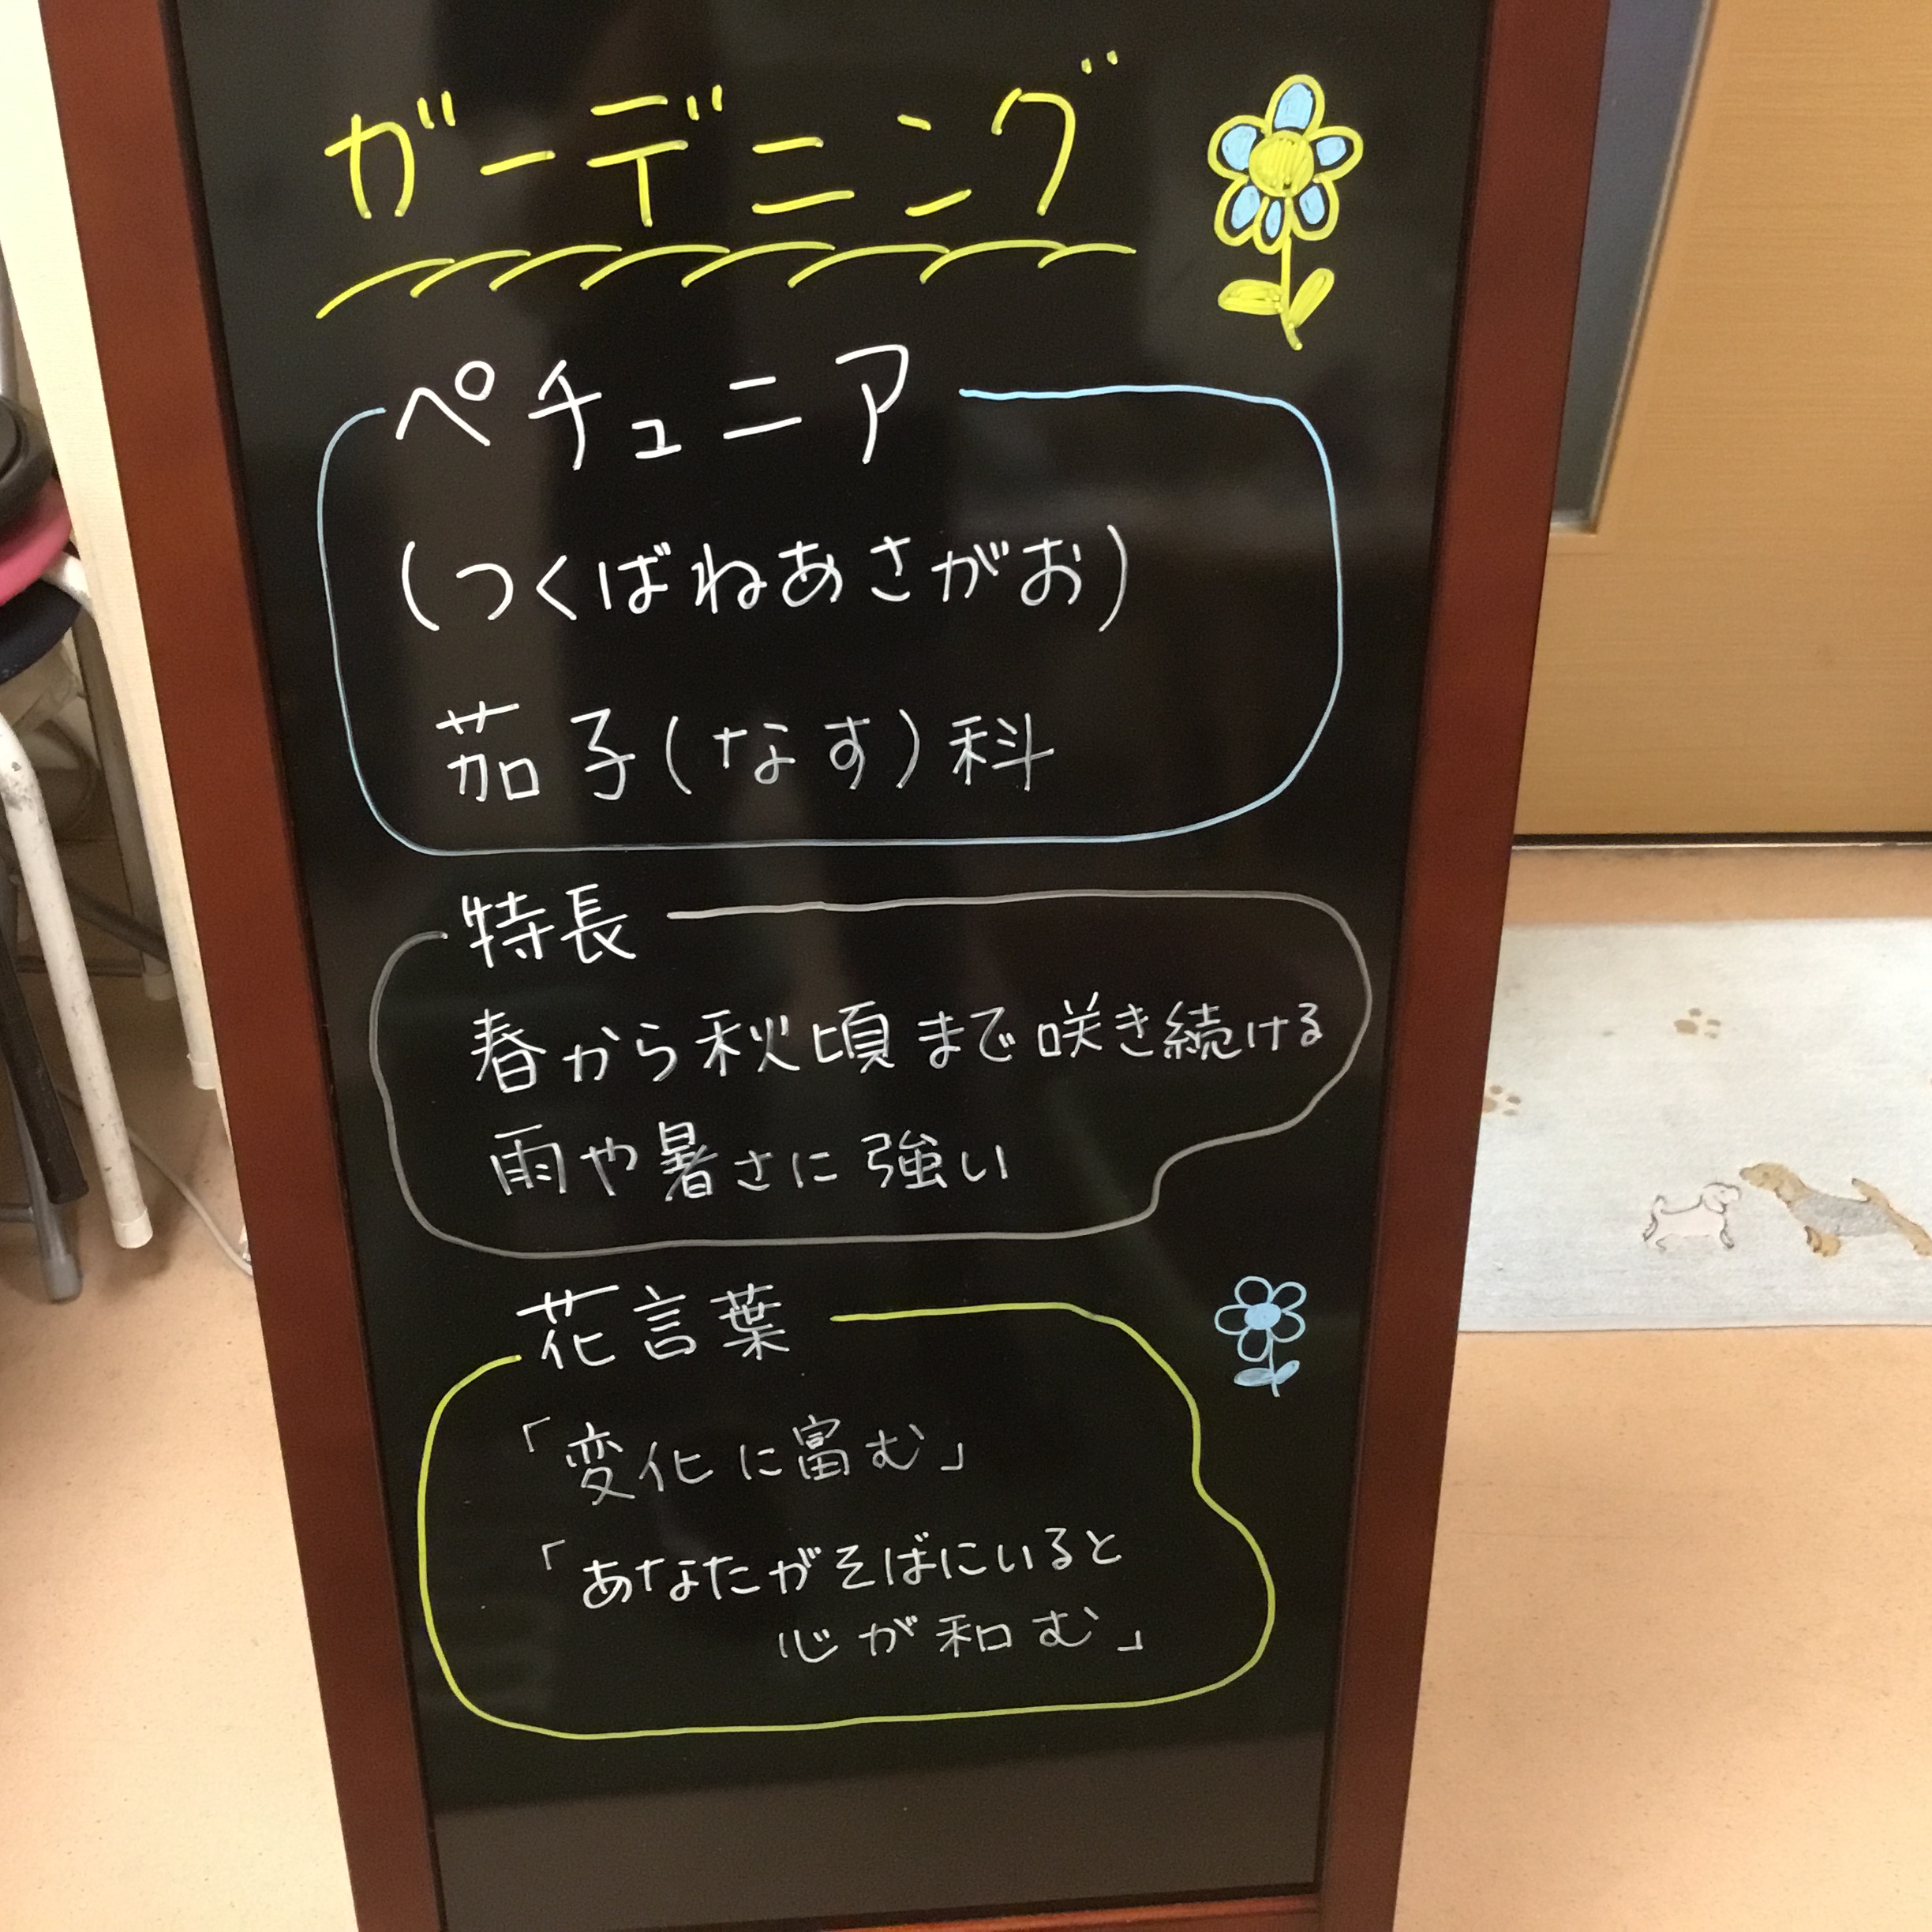 ガーデニング
ペチュニア
(つくばねあさがお)
茄子(なす)科
特長
春から秋頃まで咲き続ける
雨や暑さに強い
花言葉
「変化に富む」
「あなたがそばにいると
心が和む」